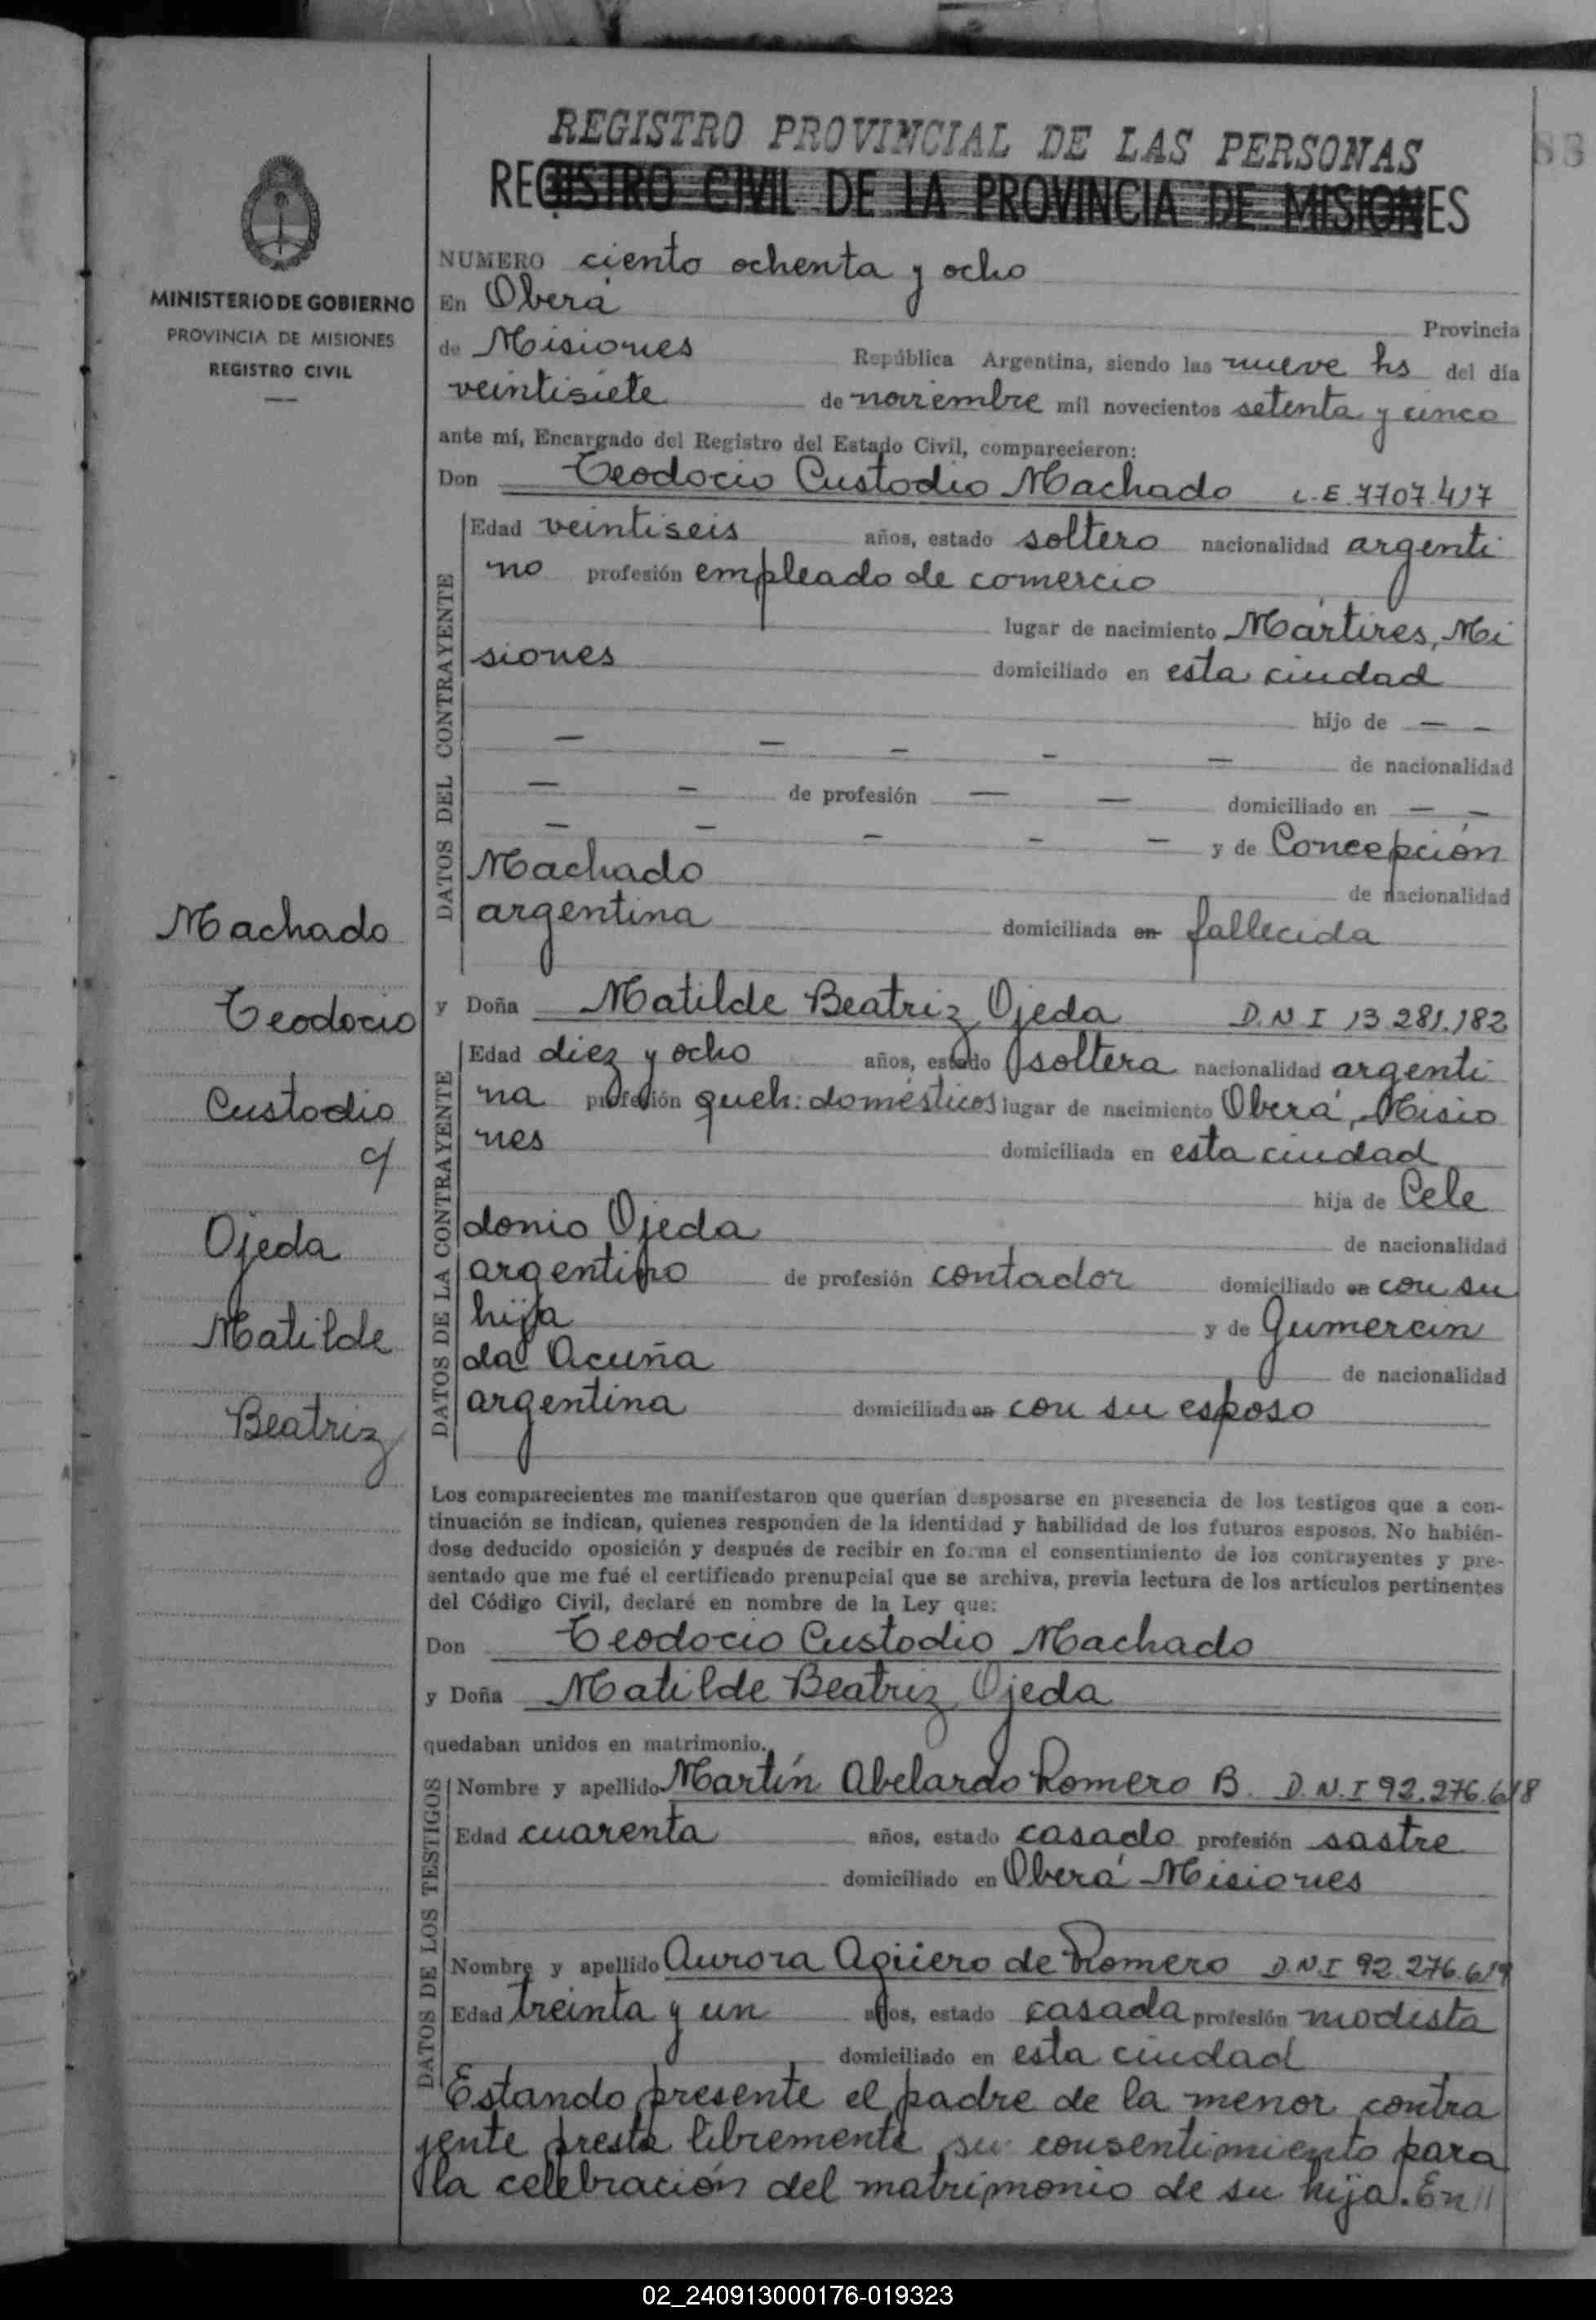 REGISTRO PROVINCIAL DE LAS PERSONAS
REGISTRO CIVIL DE LA PROVINCIA DE MISIONES
MINISTERIO DE GOBIERNO
PROVINCIA DE MISIONES
REGISTRO CIVIL
NUMERO ciento ochenta y ocho
En Oberá Provincia
de Misiones República Argentina, siendo las nueve hs del día
veintisiete de noviembre mil novecientos setenta y cinco
ante mí, Encargado del Registro del Estado Civil, comparecieron:
Don Teodocio Custodio Machado L.E. 7707.417
DATOS DEL CONTRAYENTE
Edad veintiseis años, estado soltero nacionalidad argenti
no profesión empleado de comercio
lugar de nacimiento Mártires, Mi
siones domiciliado en esta ciudad
hijo de — —
— — — — — de nacionalidad
— — de profesión — — domiciliado en — —
— — — — — y de Concepción
Machado de nacionalidad
argentina domiciliada en fallecida
y Doña Matilde Beatriz Ojeda D.N.I 13.281.182
DATOS DE LA CONTRAYENTE
Edad diez y ocho años, estado soltera nacionalidad argenti
na profesión queh: domésticos lugar de nacimiento Oberá, Misio
nes domiciliada en esta ciudad
hija de Cele
donio Ojeda de nacionalidad
argentino de profesión contador domiciliado en con su
hija y de Gumercin
da Acuña de nacionalidad
argentina domiciliada en con su esposo
Machado
Teodocio
Custodio
c/
Ojeda
Matilde
Beatriz
Los comparecientes me manifestaron que querían desposarse en presencia de los testigos que a con-
tinuación se indican, quienes responden de la identidad y habilidad de los futuros esposos. No habién-
dose deducido oposición y después de recibir en forma el consentimiento de los contrayentes y pre-
sentado que me fué el certificado prenupcial que se archiva, previa lectura de los artículos pertinentes
del Código Civil, declaré en nombre de la Ley que:
Don Teodocio Custodio Machado
y Doña Matilde Beatriz Ojeda
quedaban unidos en matrimonio.
DATOS DE LOS TESTIGOS
Nombre y apellido Martín Abelardo Romero B. D.N.I 92.276.618
Edad cuarenta años, estado casado profesión sastre
domiciliado en Oberá Misiones
Nombre y apellido Aurora Agüero de Romero D.N.I 92.276.619
Edad treinta y un años, estado casada profesión modista
domiciliado en esta ciudad
Estando presente el padre de la menor contra
yente presta libremente su consentimiento para
la celebración del matrimonio de su hija. En //
02_240913000176-019323